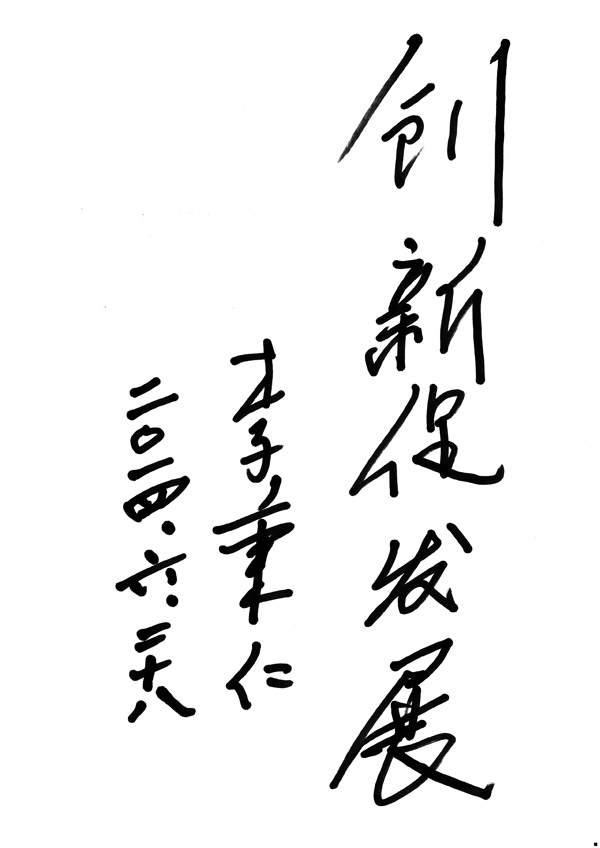 创新促发展
李秉仁
二〇一四.六.二十八